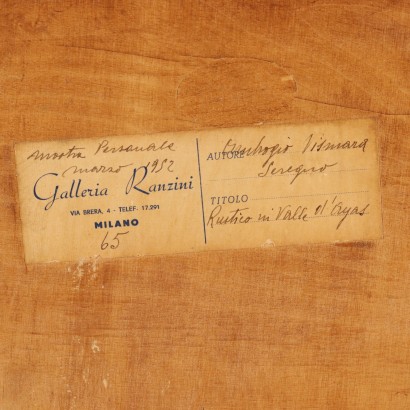 mostra Personale
marzo 1952
Galleria Ranzini
VIA BRERA, 4 - TELEF. 17.291
MILANO
65
AUTORE Ambrogio Vismara
Seregno
TITOLO
Rustico in Valle d'Ayas